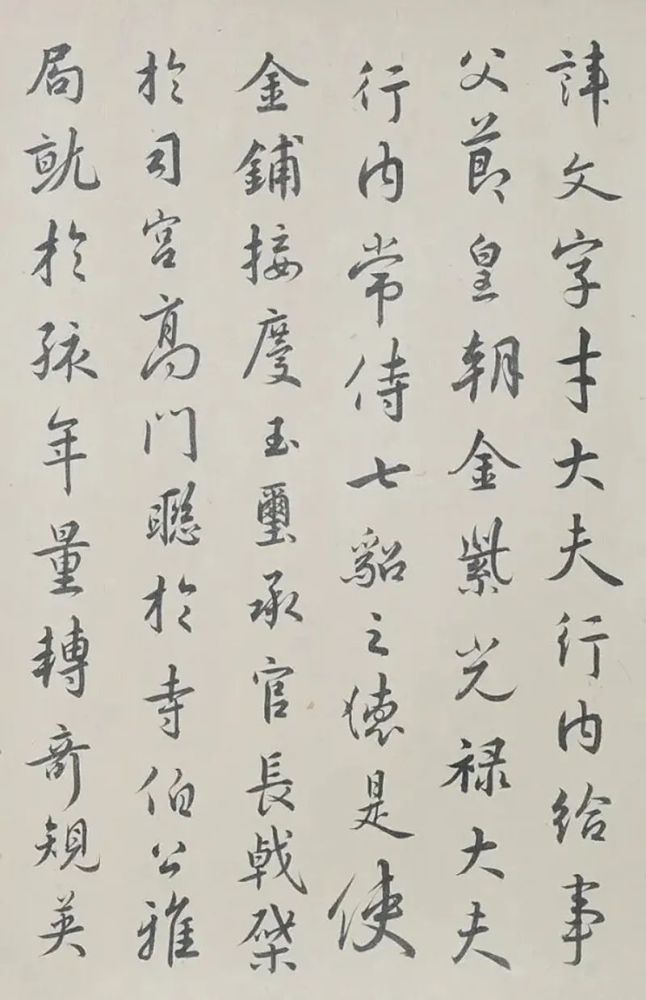 諱文字才大夫行内给事
父節皇朝金紫光禄大夫
行内常侍七貂之德是使
金鋪接慶玉璽承官長戟棨
於司宮高門聪於寺伯公雅
局就於孩年量轉奇䂓英